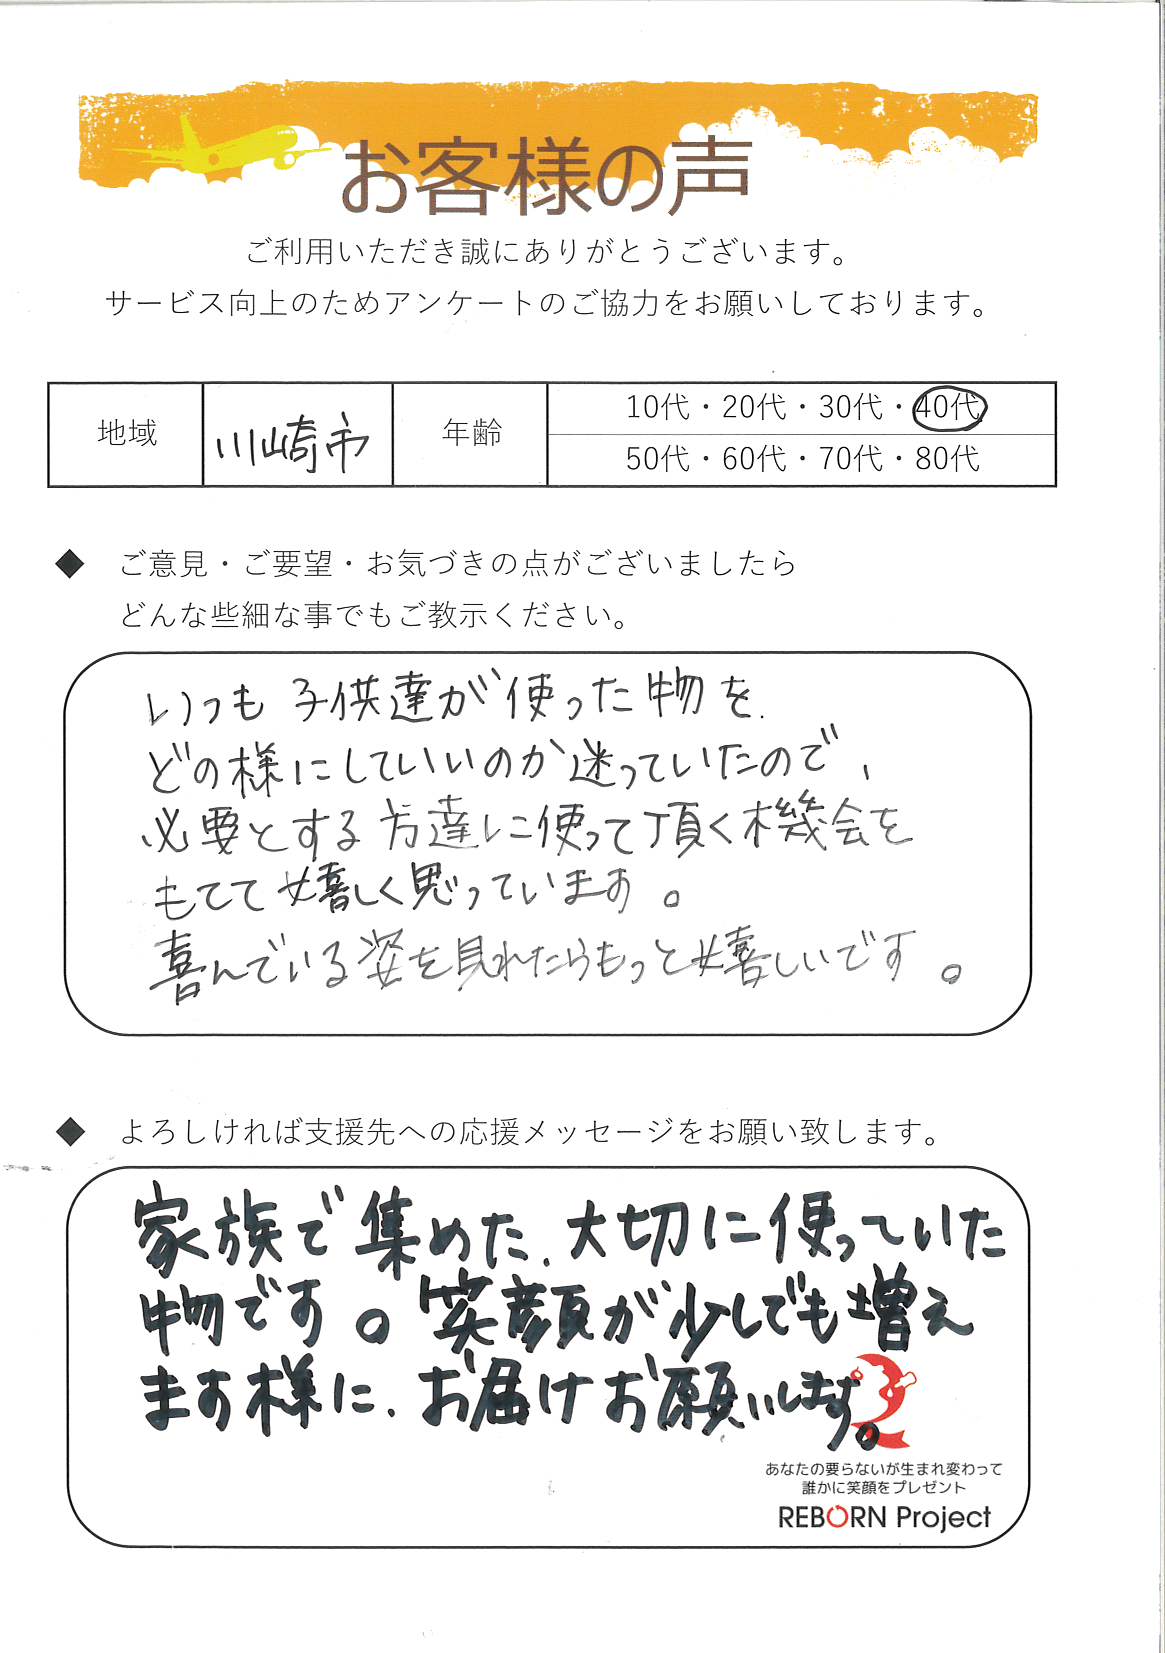 お客様の声
ご利用いただき誠にありがとうございます。
サービス向上のためアンケートのご協力をお願いしております。
地域
川崎市
年齢
10代・20代・30代・40代
50代・60代・70代・80代
◆ ご意見・ご要望・お気づきの点がございましたら
どんな些細な事でもご教示ください。
いつも子供達が使った物を、
どの様にしていいのか迷っていたので、
必要とする方達に使って頂く機会を
もてて嬉しく思っています。
喜んでいる姿を見れたらもっと嬉しいです。
◆ よろしければ支援先への応援メッセージをお願い致します。
家族で集めた、大切に使っていた
物です。笑顔が少しでも増え
ます様に、お届けお願いします。
あなたの要らないが生まれ変わって
誰かに笑顔をプレゼント
REBORN Project